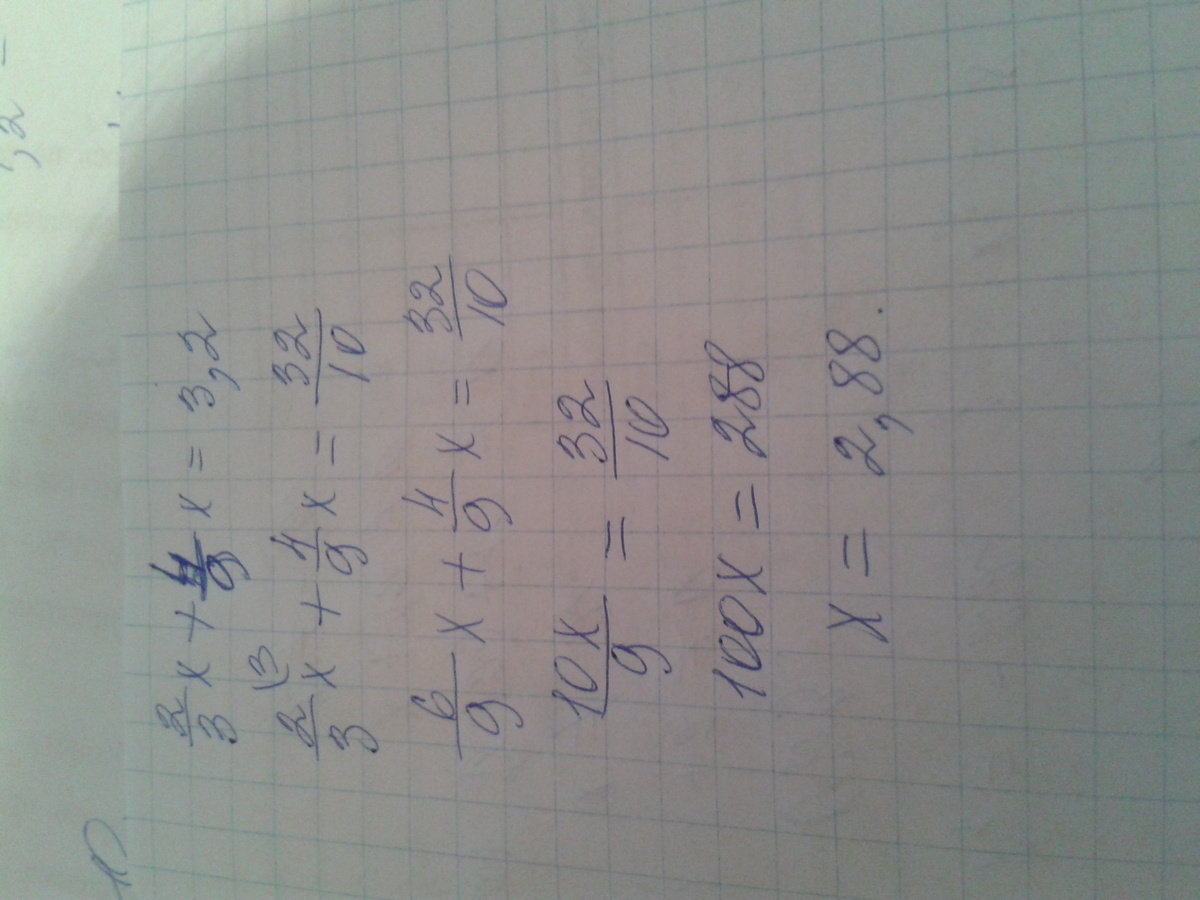 2/3 x + 4/9 x = 3,2
2/3 x (3 + 4/9 x = 32/10
6/9 x + 4/9 x = 32/10
10x/9 = 32/10
100x = 288
x = 2,88.